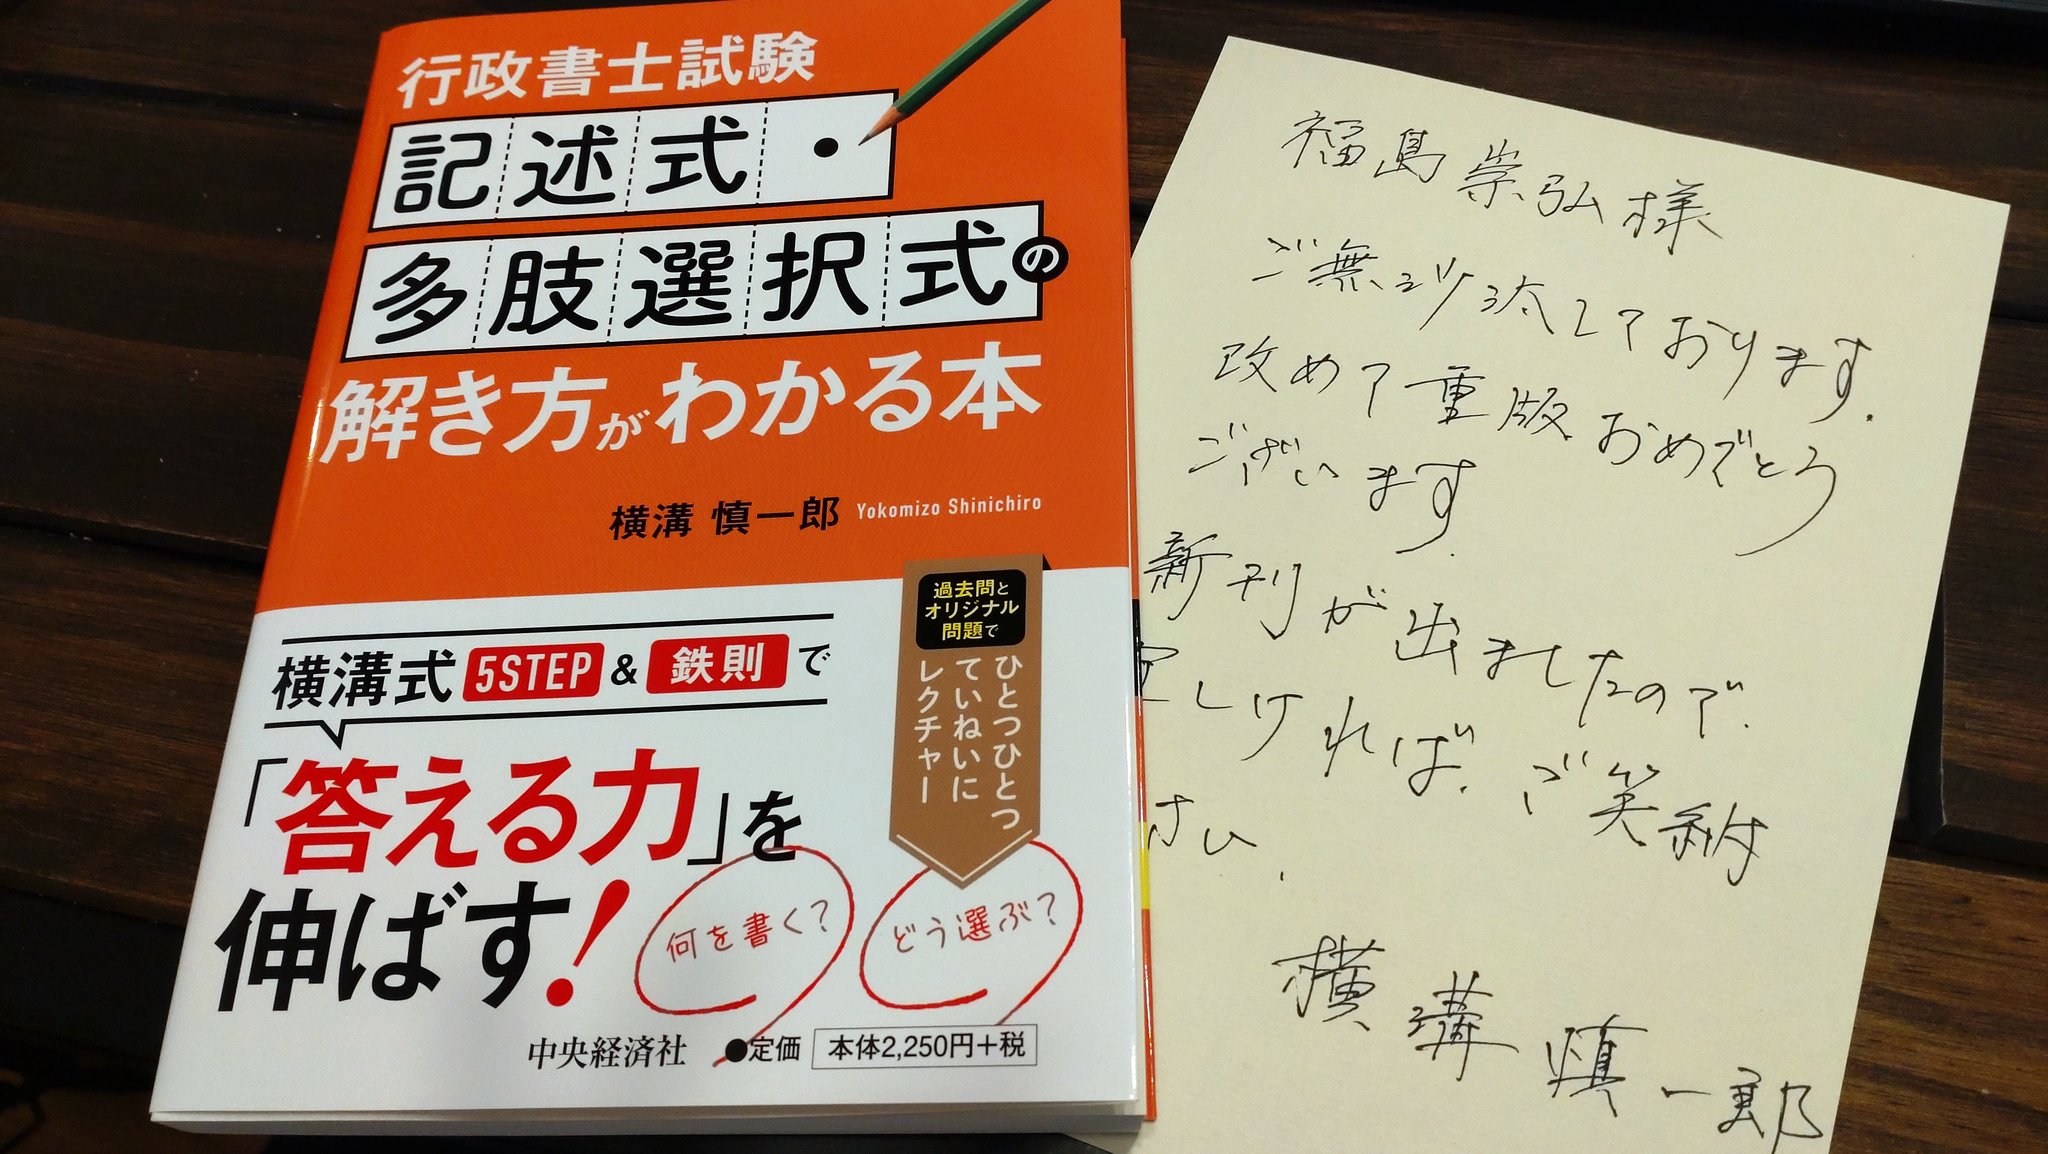 行政書士試験
記述式・
多肢選択式の
解き方がわかる本
横溝 慎一郎 Yokomizo Shinichiro
過去問と
オリジナル
問題で
ひとつひとつ
ていねいに
レクチャー
横溝式 5STEP & 鉄則で
「答える力」を
伸ばす!
何を書く?
どう選ぶ?
中央経済社 ●定価 本体2,250円+税
福島崇弘様
ご無沙汰しております.
改めて重版おめでとう
ございます.
新刊が出ましたので.
しければ.ご笑納
さい.
横溝慎一郎